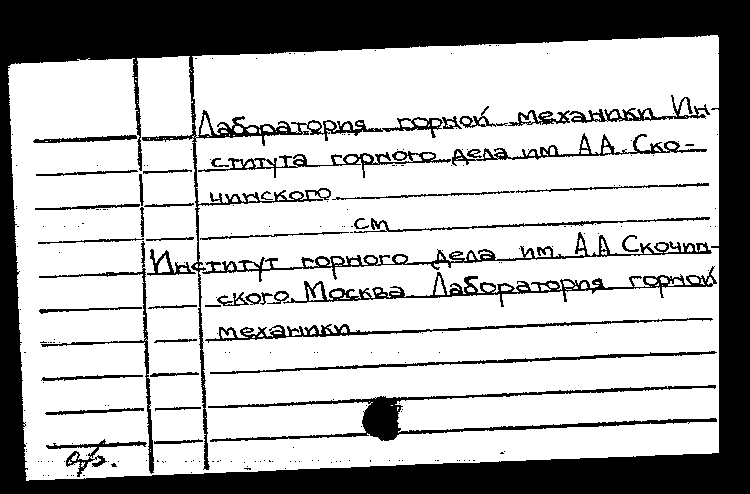 Лаборатория горной механики Ин-
ститута горного дела им А.А. Ско-
чинского.
см
Институт горного дела им. А.А Скочин-
ского. Москва Лаборатория горной
механики.